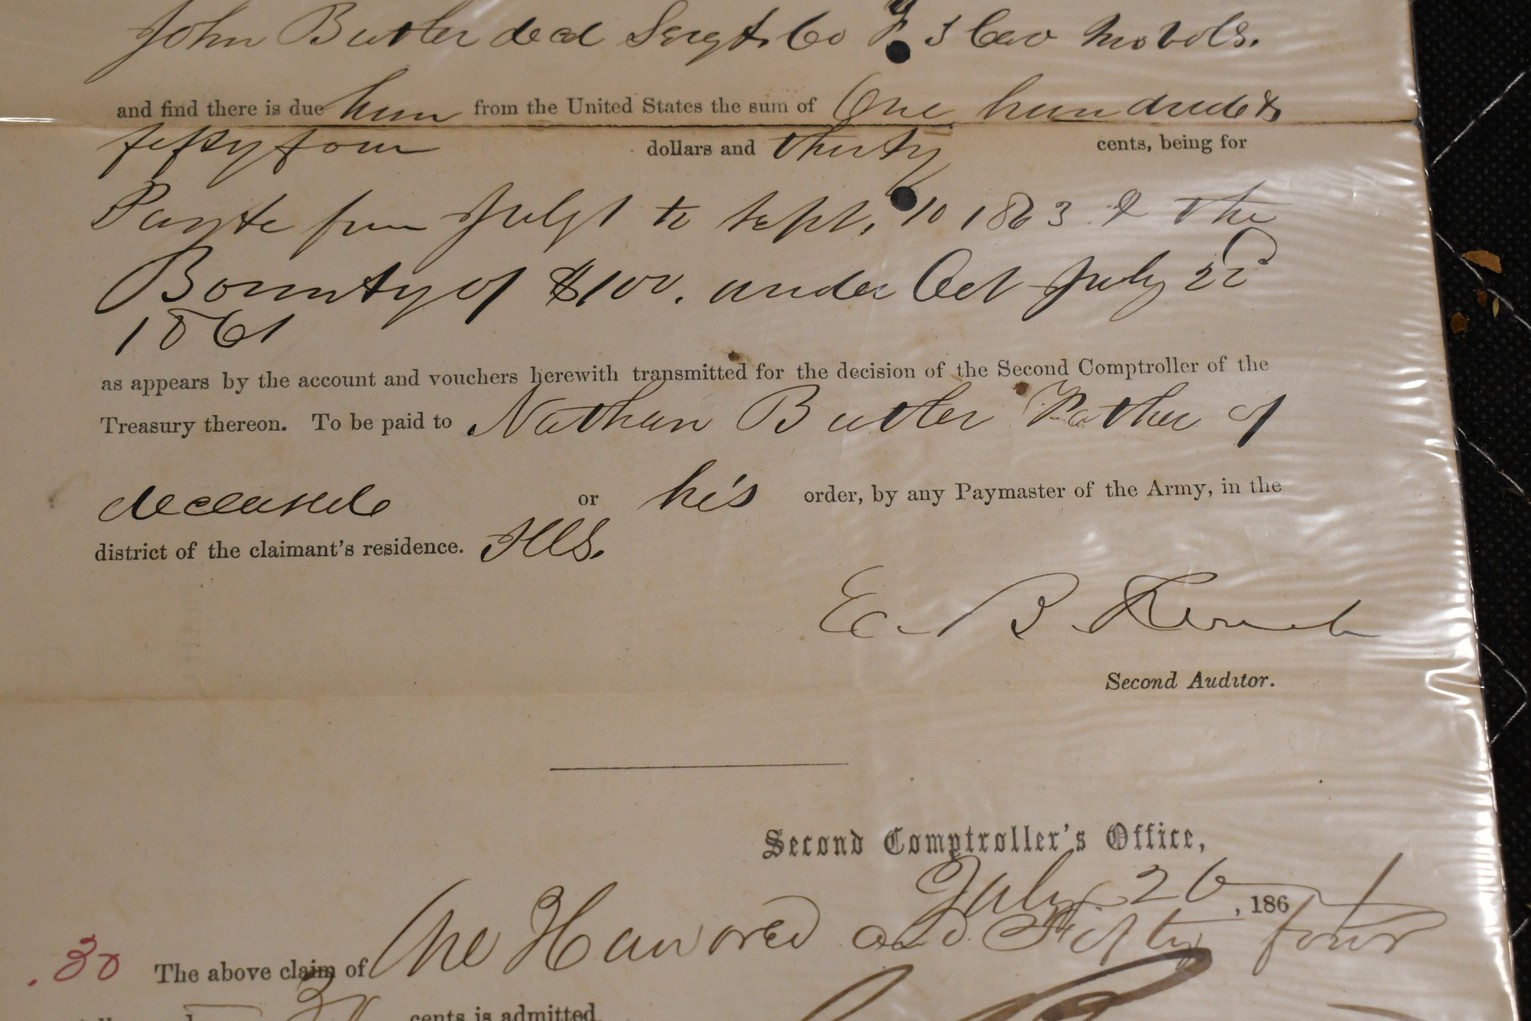 John Butler decd Sergt. Co F 3 Cav Mo Vols.
and find there is due him from the United States the sum of One hundred &
fifty four dollars and thirty cents, being for
Pay &c from July 1 to Sept. 10 1863 & the
Bounty of $100. under Act July 22d
1861
as appears by the account and vouchers herewith transmitted for the decision of the Second Comptroller of the
Treasury thereon. To be paid to Nathan Butler Father of
deceased or his order, by any Paymaster of the Army, in the
district of the claimant's residence. Ills.
E. B. French
Second Auditor.
Second Comptroller's Office,
July 26, 186
.30 The above claim of One Hundred and Fifty four
30 cents is admitted.